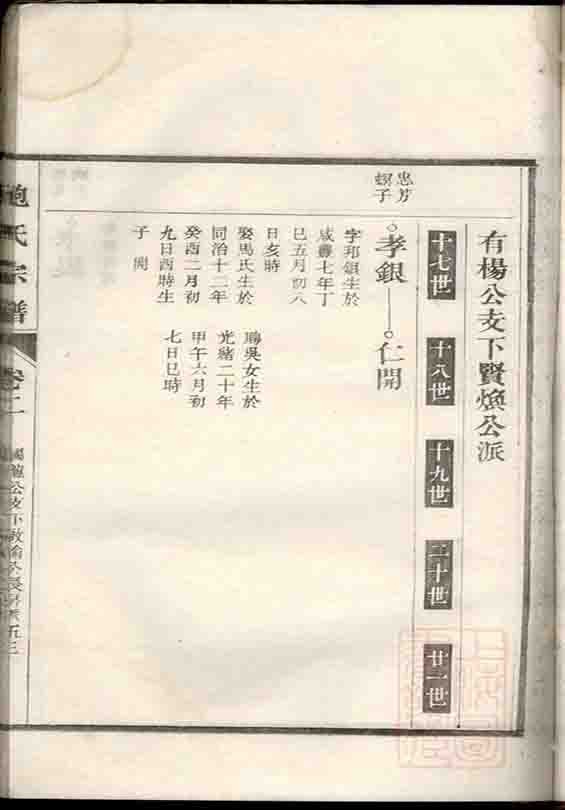 有楊公支下賢煥公派
十七世
十八世
十九世
二十世
廿一世
忠芳
螟子
孝銀
仁開
字邦銀生於
咸豐七年丁
巳五月初八
日亥時
娶馬氏生於
同治十二年
癸酉二月初
九日酉時生
子 開
聘吳女生於
光緒二十年
甲午六月初
七日巳時
氏宗譜
卷二
公支下
五三